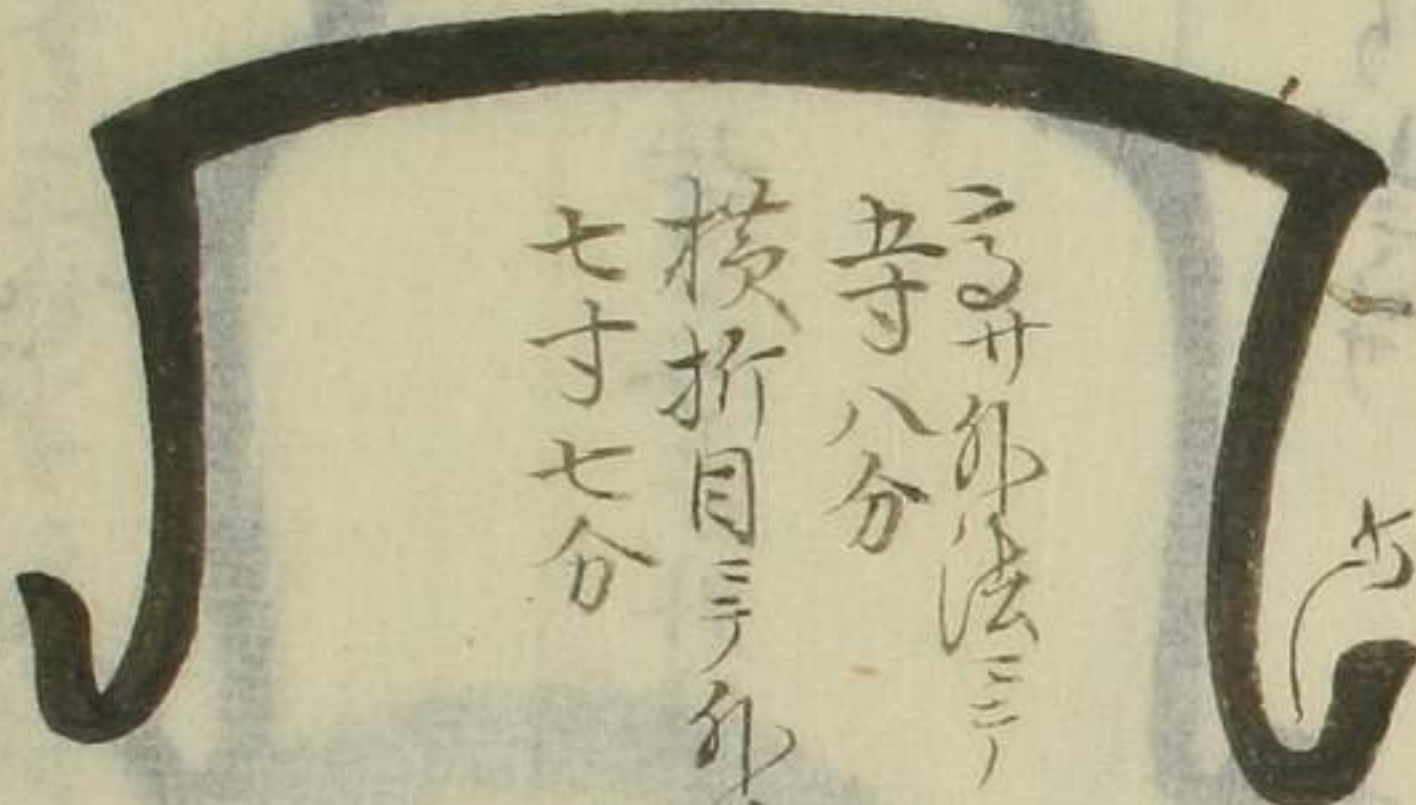 高サ外法ニテ
五寸八分
横折目ニテ外
七寸七分